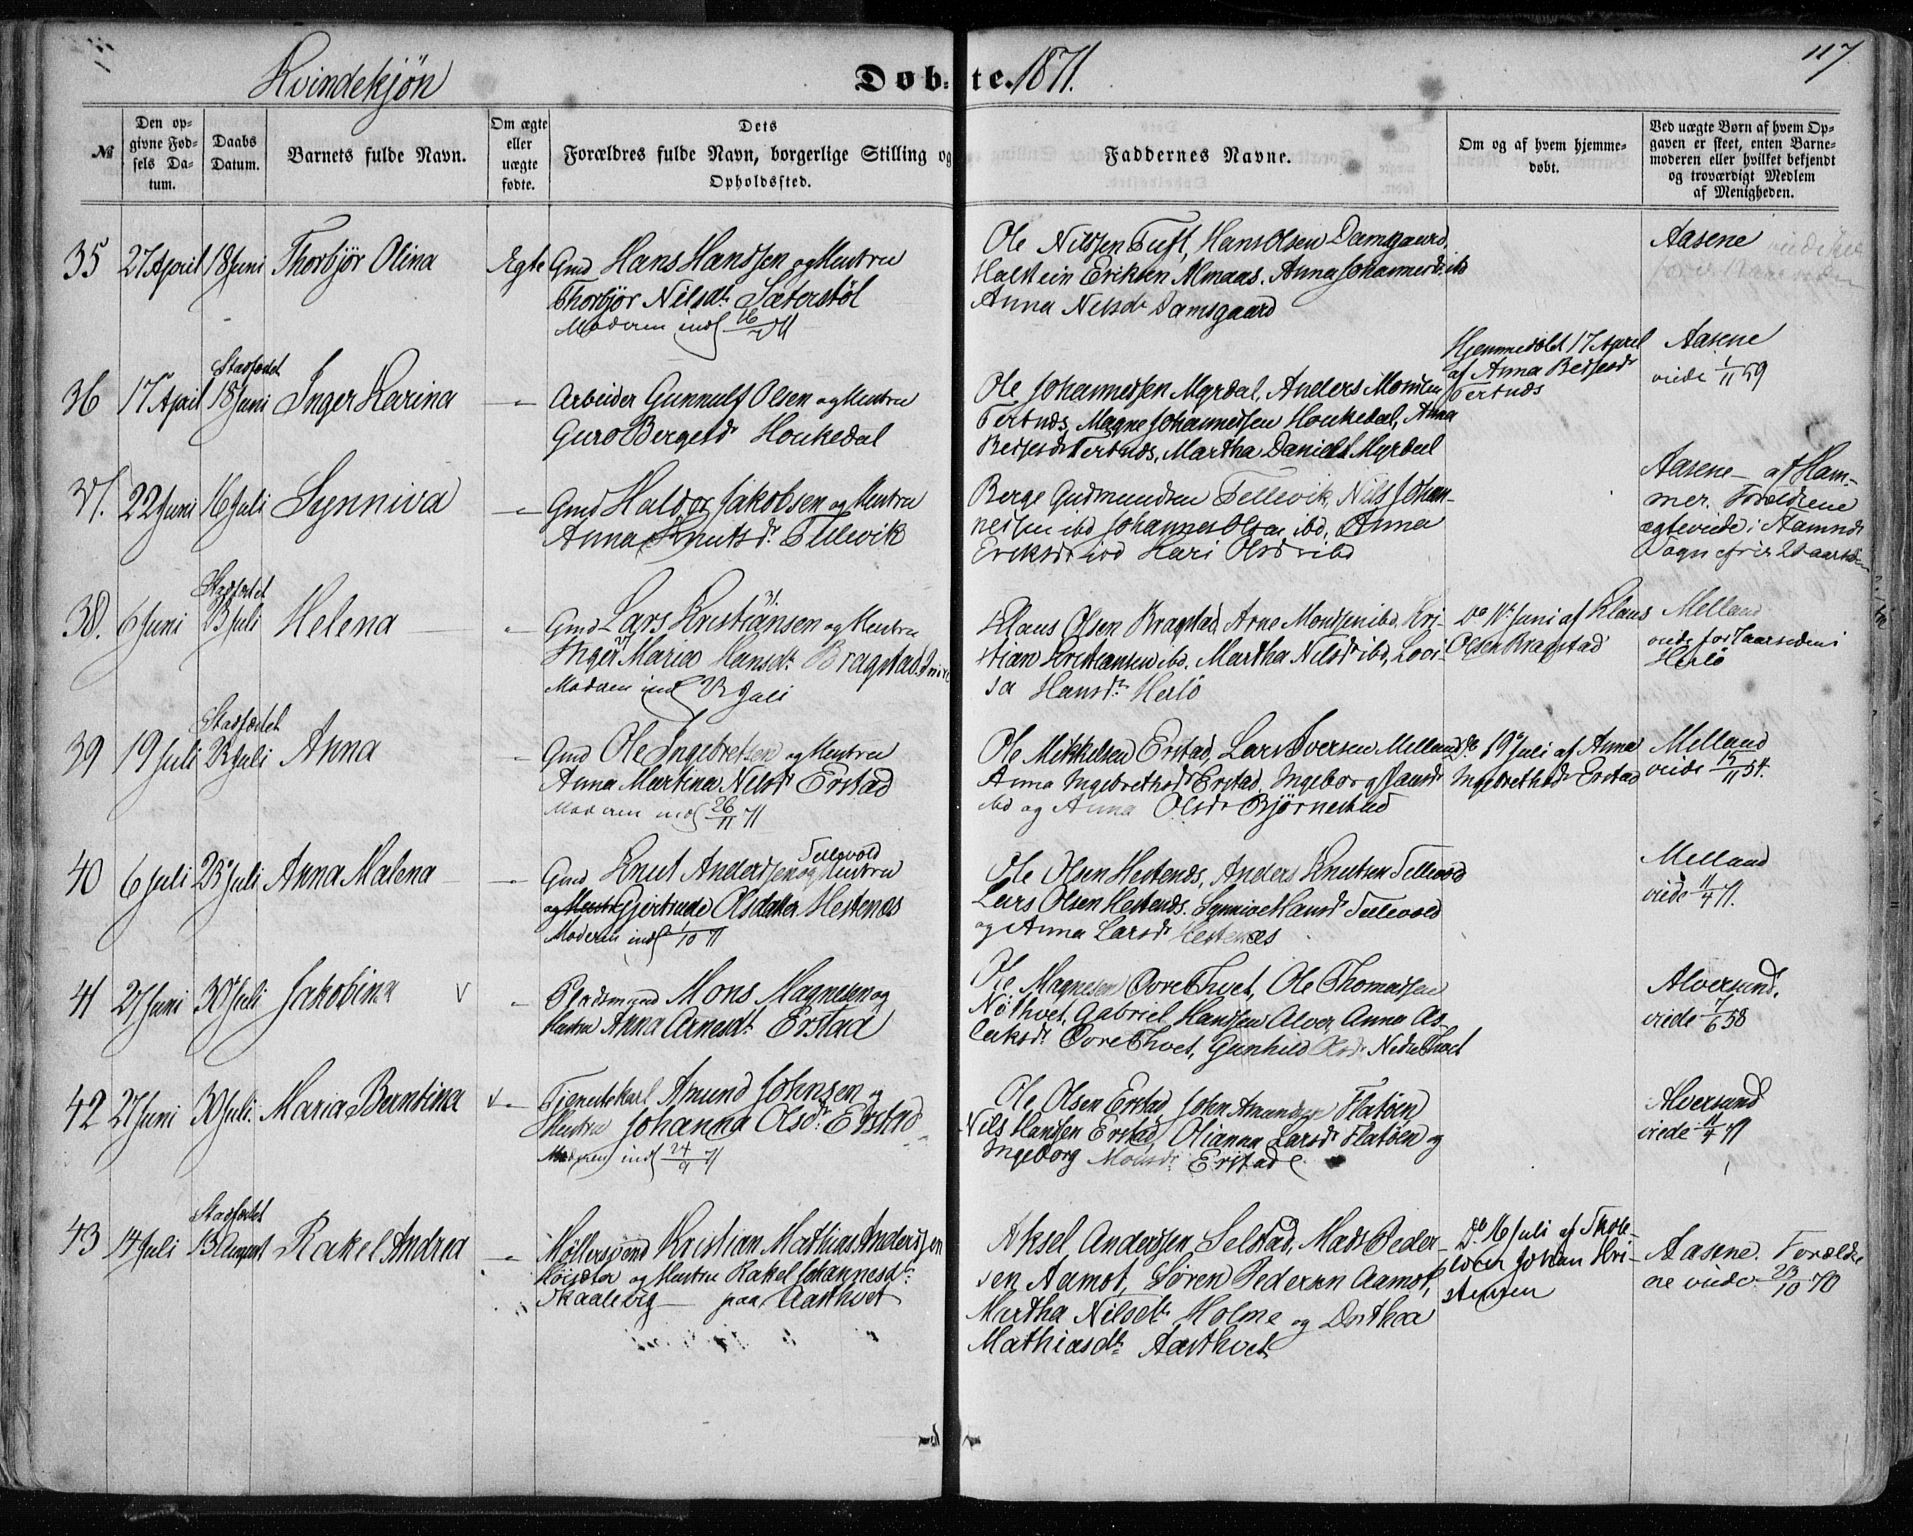 117
Kvindekjøn
Døbte. 1871.
№
Den opgivne Fødsels Datum.
Daabs Datum.
Barnets fulde Navn.
Om ægte eller uægte fødte.
Dets Forældres fulde Navn, borgerlige Stilling og Opholdssted.
Faddernes Navne.
Om og af hvem hjemmedøbt.
Ved uægte Børn af hvem Opgaven er skeet, enten Barnemoderen eller hvilket bekjendt og troværdigt Medlem af Menigheden.
35 27 April 18 Juni Thorbjør Olina Ægte Gmd Hans Hanssen og Hustru
Thorbjør Nilsdr. Sæterstøl
Moderen indl
Ole Nilssen Tuft, Hans Olsen Damsgaard,
Halstein Eriksen Almaas, Anna Johannesdr ibd
Anna Nilsdr Damsgaard
Aasene
36 17 April Stadfæstet 18 Juni Inger Karina
Arbeider Gunnulf Olsen og Hustru
Guro Bergesdr Houkedal
Ole Johannessen Myrdal, Anders Monsen
Tertnæs, Magne Johannessen Houkedal, Anna
Tertnæs, Martha Danielsd Myrdal
Hjemmedøbt 17 April
af Anna
Tertnæs
Aasene
viede 1/11 59
37. 22 Juni 16 Juli Synniva
Gmd Haldor Jakobsen og Hustru
Anna Knutsdr. Tellevik
Berge Gudmundsen Tellevik, Nils Johan-
nessen ibd Johannes Olsen ibd, Anna
Eriksdr ibd Kari Olsdr ibd
Aasene – af Ham-
mer. Forældrene
ægteviede i Hammer
38. 6 Juni Stadfæstet 23 Juli Helena
Gmd Lars Kristiansen og Hustru
Inger Maria Hansdr. Bragstad
Moderen indl 23 Juli
Klaus Olsen Bragstad, Arne Monssen ibd, Kri-
stian Kristiansen ibd, Martha Nilsdr ibd, Lovi-
sa Hansdr Herlø
Do 11 Juni af Klaus
Olsen Bragstad
Melland
Herlø
39 19 Juli Stadfæstet 23 Juli Anna
Gmd Ole Ingebretsen og Hustru
Anna Martina Nilsdr Erstad
Moderen indl 26/11 71
Ole Mikkelsen Erstad, Lars Iversen Melland
Anna Ingebretsdr Erstad, Ingeborg Hansdr
ibd og Anna Olsdr Bjørnestad
Do 19 Juli af Anna
Ingebretsdr Erstad
Melland
viede 12/11 54.
40 6 Juli 23 Juli Anna Malena
Gmd Knut Anderssen Tellevold og Hustru
Gjertrude Olsdatter Hestenæs
Moderen indl
Ole Olsen Hestenæs, Anders Knutsen Tellevold
Lars Olsen Hestenæs. Synnive Hansdr Tellevold
og Anna Larsdr Hestenæs
Melland
viede 11/4 71.
41 27 Juni 30 Juli Jakobina V
Pladsmand Mons Magnesen og
Hustru Anna Arnesdr. Erstad
Ole Magnesen Øvrethvet, Ole Thomassen
Nøthvet, Gabriel Hanssen Alver, Anna As-
laksdr. Øvrethvet, Gunhild Olsdr Nedrethvet
Alversund,
viede 7/6 58
42 27 Juni 30 Juli. Maria Berntina V
Tjenestekarl Amund Johnsen og
Hustru Johanna Olsdr. Erstad
Moderen indl 24/9 71
Ole Olsen Erstad, John Amundsen Flatøen
Nils Hanssen Erstad, Olianna Larsdr Flatøen og
Ingeborg Monsdr Erstad
Alversund
viede 11/4 71
43 14 Juli Stadfæstet 13 August Rakel Andrea
Møllersvend Kristian Mathias Anderssen
og Hustru Rakel Johannesdr.
Skaalevig – paa Aasthvet
Aksel Anderssen Selstad, Mads Peder-
sen Aamot, Søren Pedersen Aamot,
Martha Nilsdr Holme og Dorthea
Mathiasdr Aasthvet
Do. 16 Juli af Skole-
lærer Johan Kri-
stensen
Aasene. Forældre-
ne viede 23/10 70